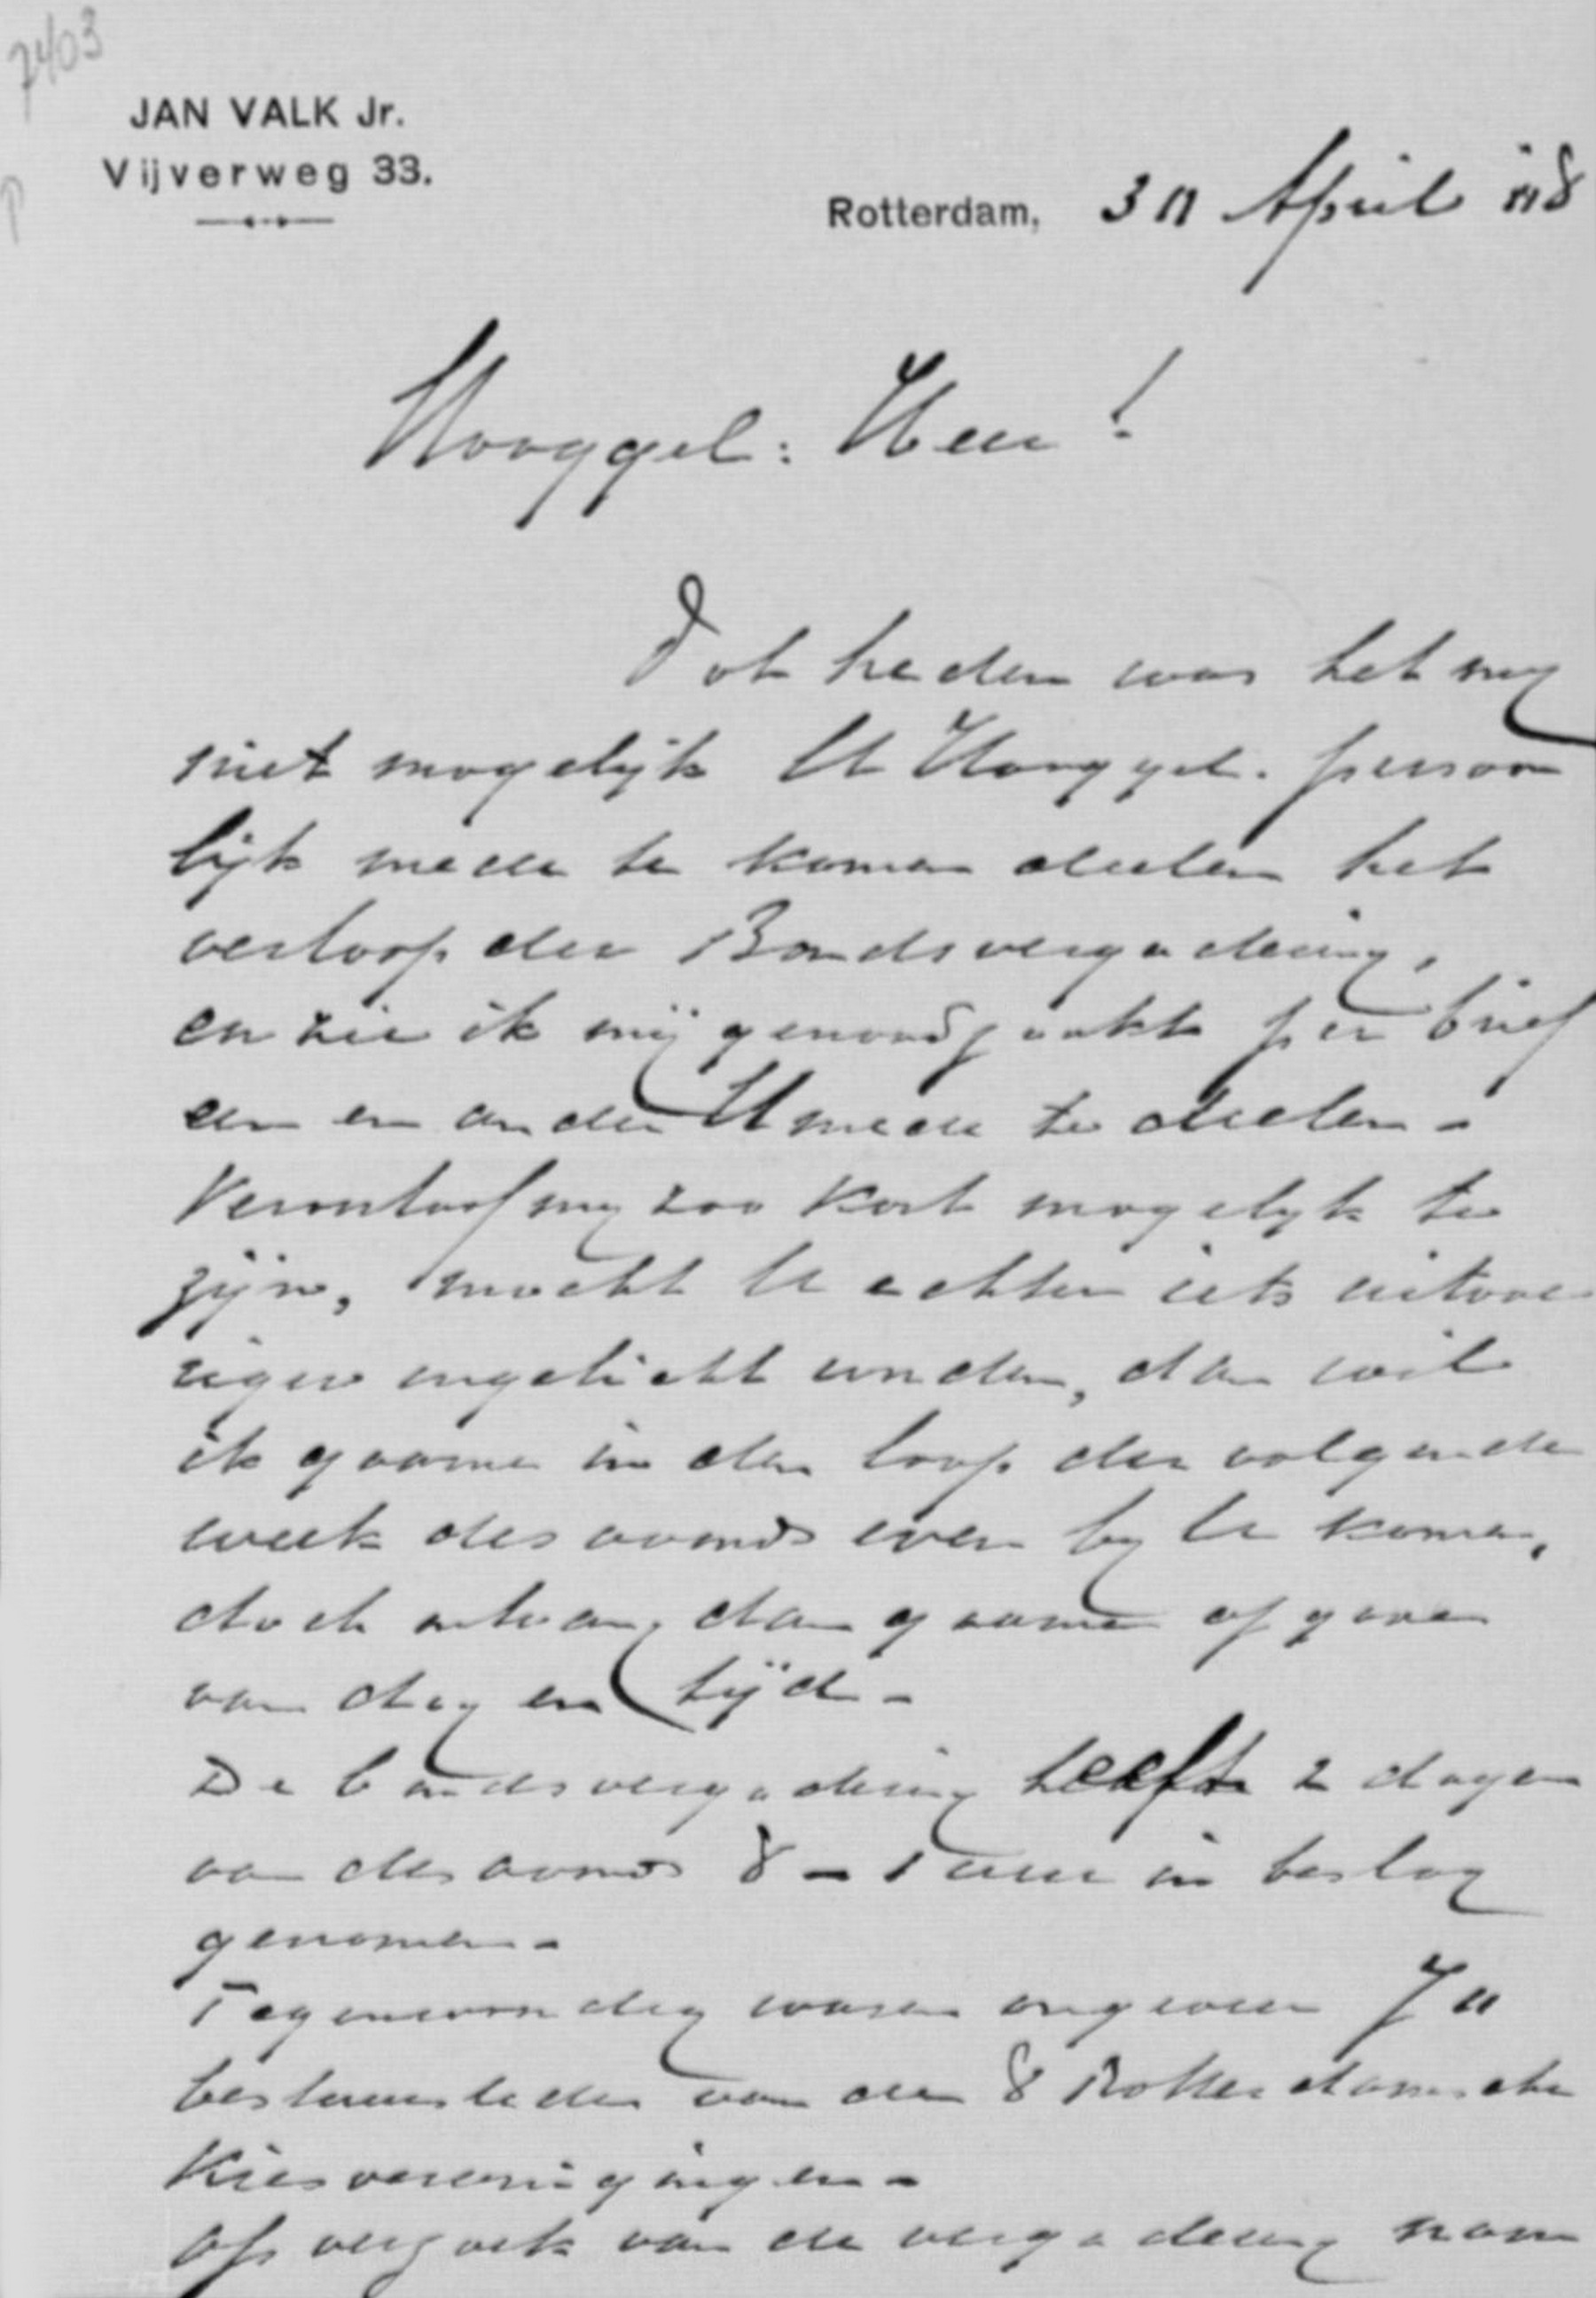 7403
JAN VALK Jr.
Vijverweg 33.
Rotterdam, 30 April '18
Hooggel: Heer!
Tot heden was het mij
niet mogelijk U Hooggel. persoon
lijk mede te komen deelen het
verloop der Bondsvergadering,
en zie ik mij genoodzaakt per brief
een en ander U mede te deelen -
Veroorloof mij zoo kort mogelijk te
zijn, mocht U echter iets uitvoe
riger ingelicht worden, dan wil
ik gaarne in den loop der volgende
week des avonds even bij U komen,
doch ontvang dan gaarne opgave
van dag en tijd -
De bondsvergadering heeft 2 dagen
van des avonds 8 - 1 uur in beslag
genomen -
Tegenwoordig waren ongeveer 70
bestuursleden van de 8 Rotterdamsche
Kiesvereenigingen -
Op verzoek van de vergadering nam